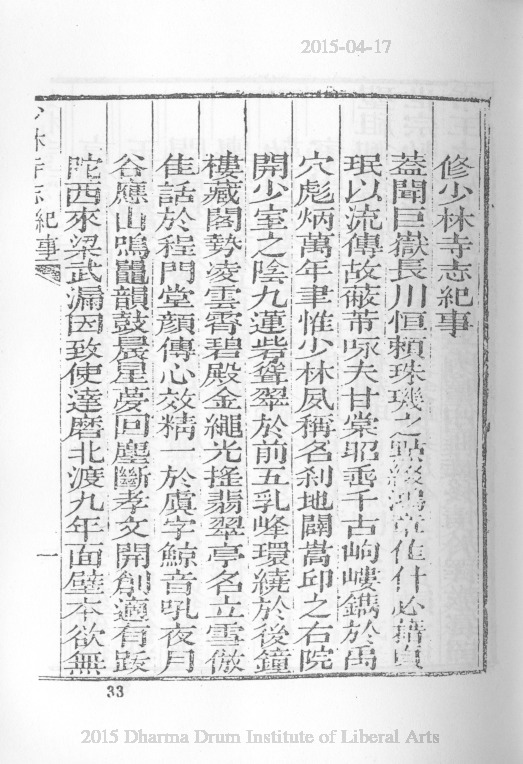 2015-04-17
修少林寺志紀事
蓋聞巨嶽長川恒賴珠璣之點綴鴻章佳什必藉
珉以流傳故蔽芾咏夫甘棠昭垂千古岣嶁鐫於禹
穴彪炳萬年聿惟少林夙稱名刹地闢嵩邱之右院
開少室之陰九蓮砦聳翠於前五乳峰環繞於後鐘
樓藏閣勢凌雲霄碧殿金繩光搖翡翠亭名立雪倣
佳話於程門堂顏傳心效精一於虞字鯨音吼夜月
谷應山鳴鼉韻鼓晨星夢回塵斷孝文開創適有跋
陀西來梁武漏因致使達磨北渡九年面壁本欲無
少林寺志紀事
一
33
2015 Dharma Drum Institute of Liberal Arts